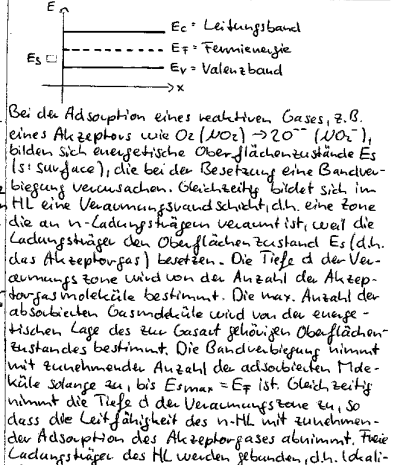 E
Ec = Leitungsband
EF = Fermienergie
Es
Ev = Valenzband
x
Bei der Adsorption eines reaktiven Gases, z.B.
eines Akzeptors wie O2 (NO2) → 2O⁻⁻ (NO2⁻),
bilden sich energetische Oberflächenzustände Es
(s: surface), die bei der Besetzung eine Bandver-
biegung verursachen. Gleichzeitig bildet sich im
HL eine Verarmungsrandschicht, d.h. eine Zone
die an n-Ladungsträgern verarmt ist, weil die
Ladungsträger den Oberflächenzustand Es (d.h.
das Akzeptorgas) besetzen. Die Tiefe d der Ver-
armungszone wird von der Anzahl der Akzep-
torgasmoleküle bestimmt. Die max. Anzahl der
absorbierten Gasmoleküle wird von der energe-
tischen Lage des zur Gasart gehörigen Oberflächen-
zustandes bestimmt. Die Bandverbiegung nimmt
mit zunehmender Anzahl der adsorbierten Mole-
küle solange zu, bis Esmax = EF ist. Gleichzeitig
nimmt die Tiefe d der Verarmungszone zu, so
dass die Leitfähigkeit des n-HL mit zunehmen-
der Adsorption des Akzeptorgases abnimmt. Freie
Ladungsträger des HL werden gebunden, d.h. lokali-